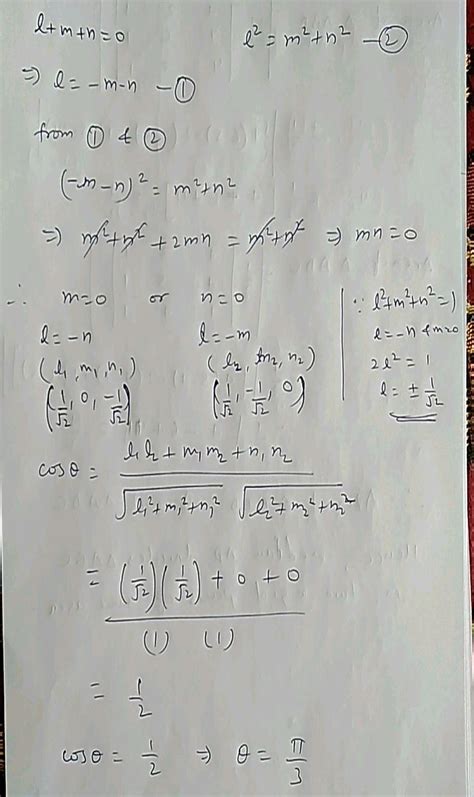 l+m+n=0 l² = m²+n² —②
⇒ l = -m-n —①
from ① & ②
(-m-n)² = m²+n²
⇒ m²+n²+2mn = m²+n² ⇒ mn=0
∴ m=0 or n=0
l=-n l=-m
(l₁, m₁, n₁) (l₂, m₂, n₂)
(1/√2, 0, -1/√2) (1/√2, -1/√2, 0)
∵ l²+m²+n²=1
l=-n & m=0
2l² = 1
l = ± 1/√2
cosθ = (l₁l₂+m₁m₂+n₁n₂) / (√(l₁²+m₁²+n₁²) √(l₂²+m₂²+n₂²))
= ((1/√2)(1/√2) + 0 + 0) / ((1) (1))
= 1/2
cosθ = 1/2 ⇒ θ = π/3